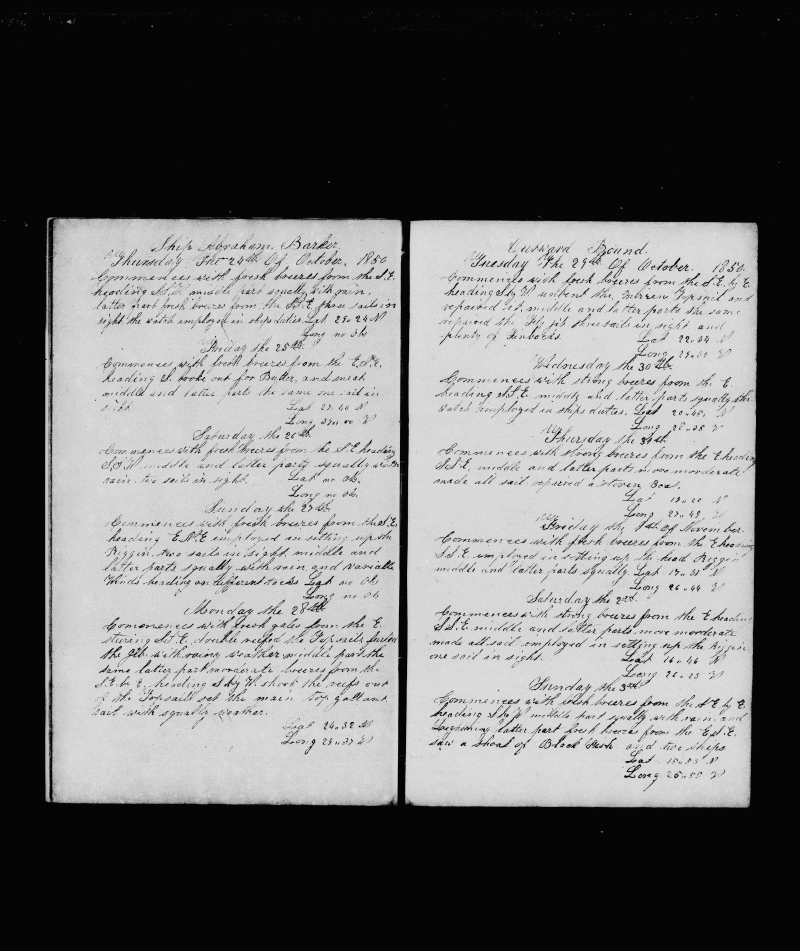 Ship Abraham Barker
Thursday The 24th Of October. 1850
Commences with fresh breeres from the S.E.
heading middle part squally with rain.
latter part fresh breeres from the three sails in
sight the watch employed in ships duties. Lat 29..24 N
Long no obs
Friday the 25th
Commences with fresh breeres from the E.S.E.
heading S. out for Butter, and
middle and latter parts the same one sail in
sight. Lat 27..40 N
Long W
Saturday the 26th
Commences with fresh breeres from the S.E. heading
S.S.W. middle and latter parts squally with
rain. two sails in sight. Lat no obs.
Long no obs.
Sunday the 27th
Commences with fresh breeres from the S.E.
heading E.N.E employed in setting up the
Riggin two sails in sight, middle and
latter parts squally with rain and variable
Winds heading on different tacks Lat no obs
Long no obs
Monday the 28th
Commences with fresh gales from the E
stering double reefed the Topsails furled
the Jib with weather middle part the
same latter part moderate breeres from the
S.E. by E. heading S by W. shook the reefs out
of the Topsails set the main top gallant
sail with squally weather.
Lat 24..32 N
Long W
Outward Bound.
Tuesday The 29th Of October. 1850.
Commences with fresh breeres from the S.E. by E.
heading S by W. unbent the Topsail and
repaired it, middle and latter parts the same
repaired the Fly jib three sails in sight and
plenty of
Lat 22..54 N
Long W
Wednesday the 30th.
Commences with strong breeres from the E.
heading S.S.E. middle and latter parts squally the
watch employed in ships duties. Lat 20..40 N
Long 28..35 W
Thursday the 31st.
Commences with strong breeres from the E heading
S.S.E. middle and latter parts more moorderate
made all sail repaired a stoven Boat.
Lat 19..20 N
Long 27..49 W
Friday the 1st of November.
Commences with fresh breeres from the E heading
S.S.E. employed in setting up the head Riggin
middle and latter parts squally Lat 17..31 N
Long 26..44 W
Saturday the 2nd.
Commences with strong breeres from the E heading
S.S.E. middle and latter parts more moorderate
made all sail employed in setting up the riggin
one sail in sight. Lat 16..46 N
Long 26..23 W
Sunday the 3rd
Commences with fresh breeres from the S.E. by E.
heading S by W middle part squally with rain and
latter part fresh breeres from the E.S.E.
saw a shoal of Black Fish and two ships
Lat 15..53 N
Long 25..55 W